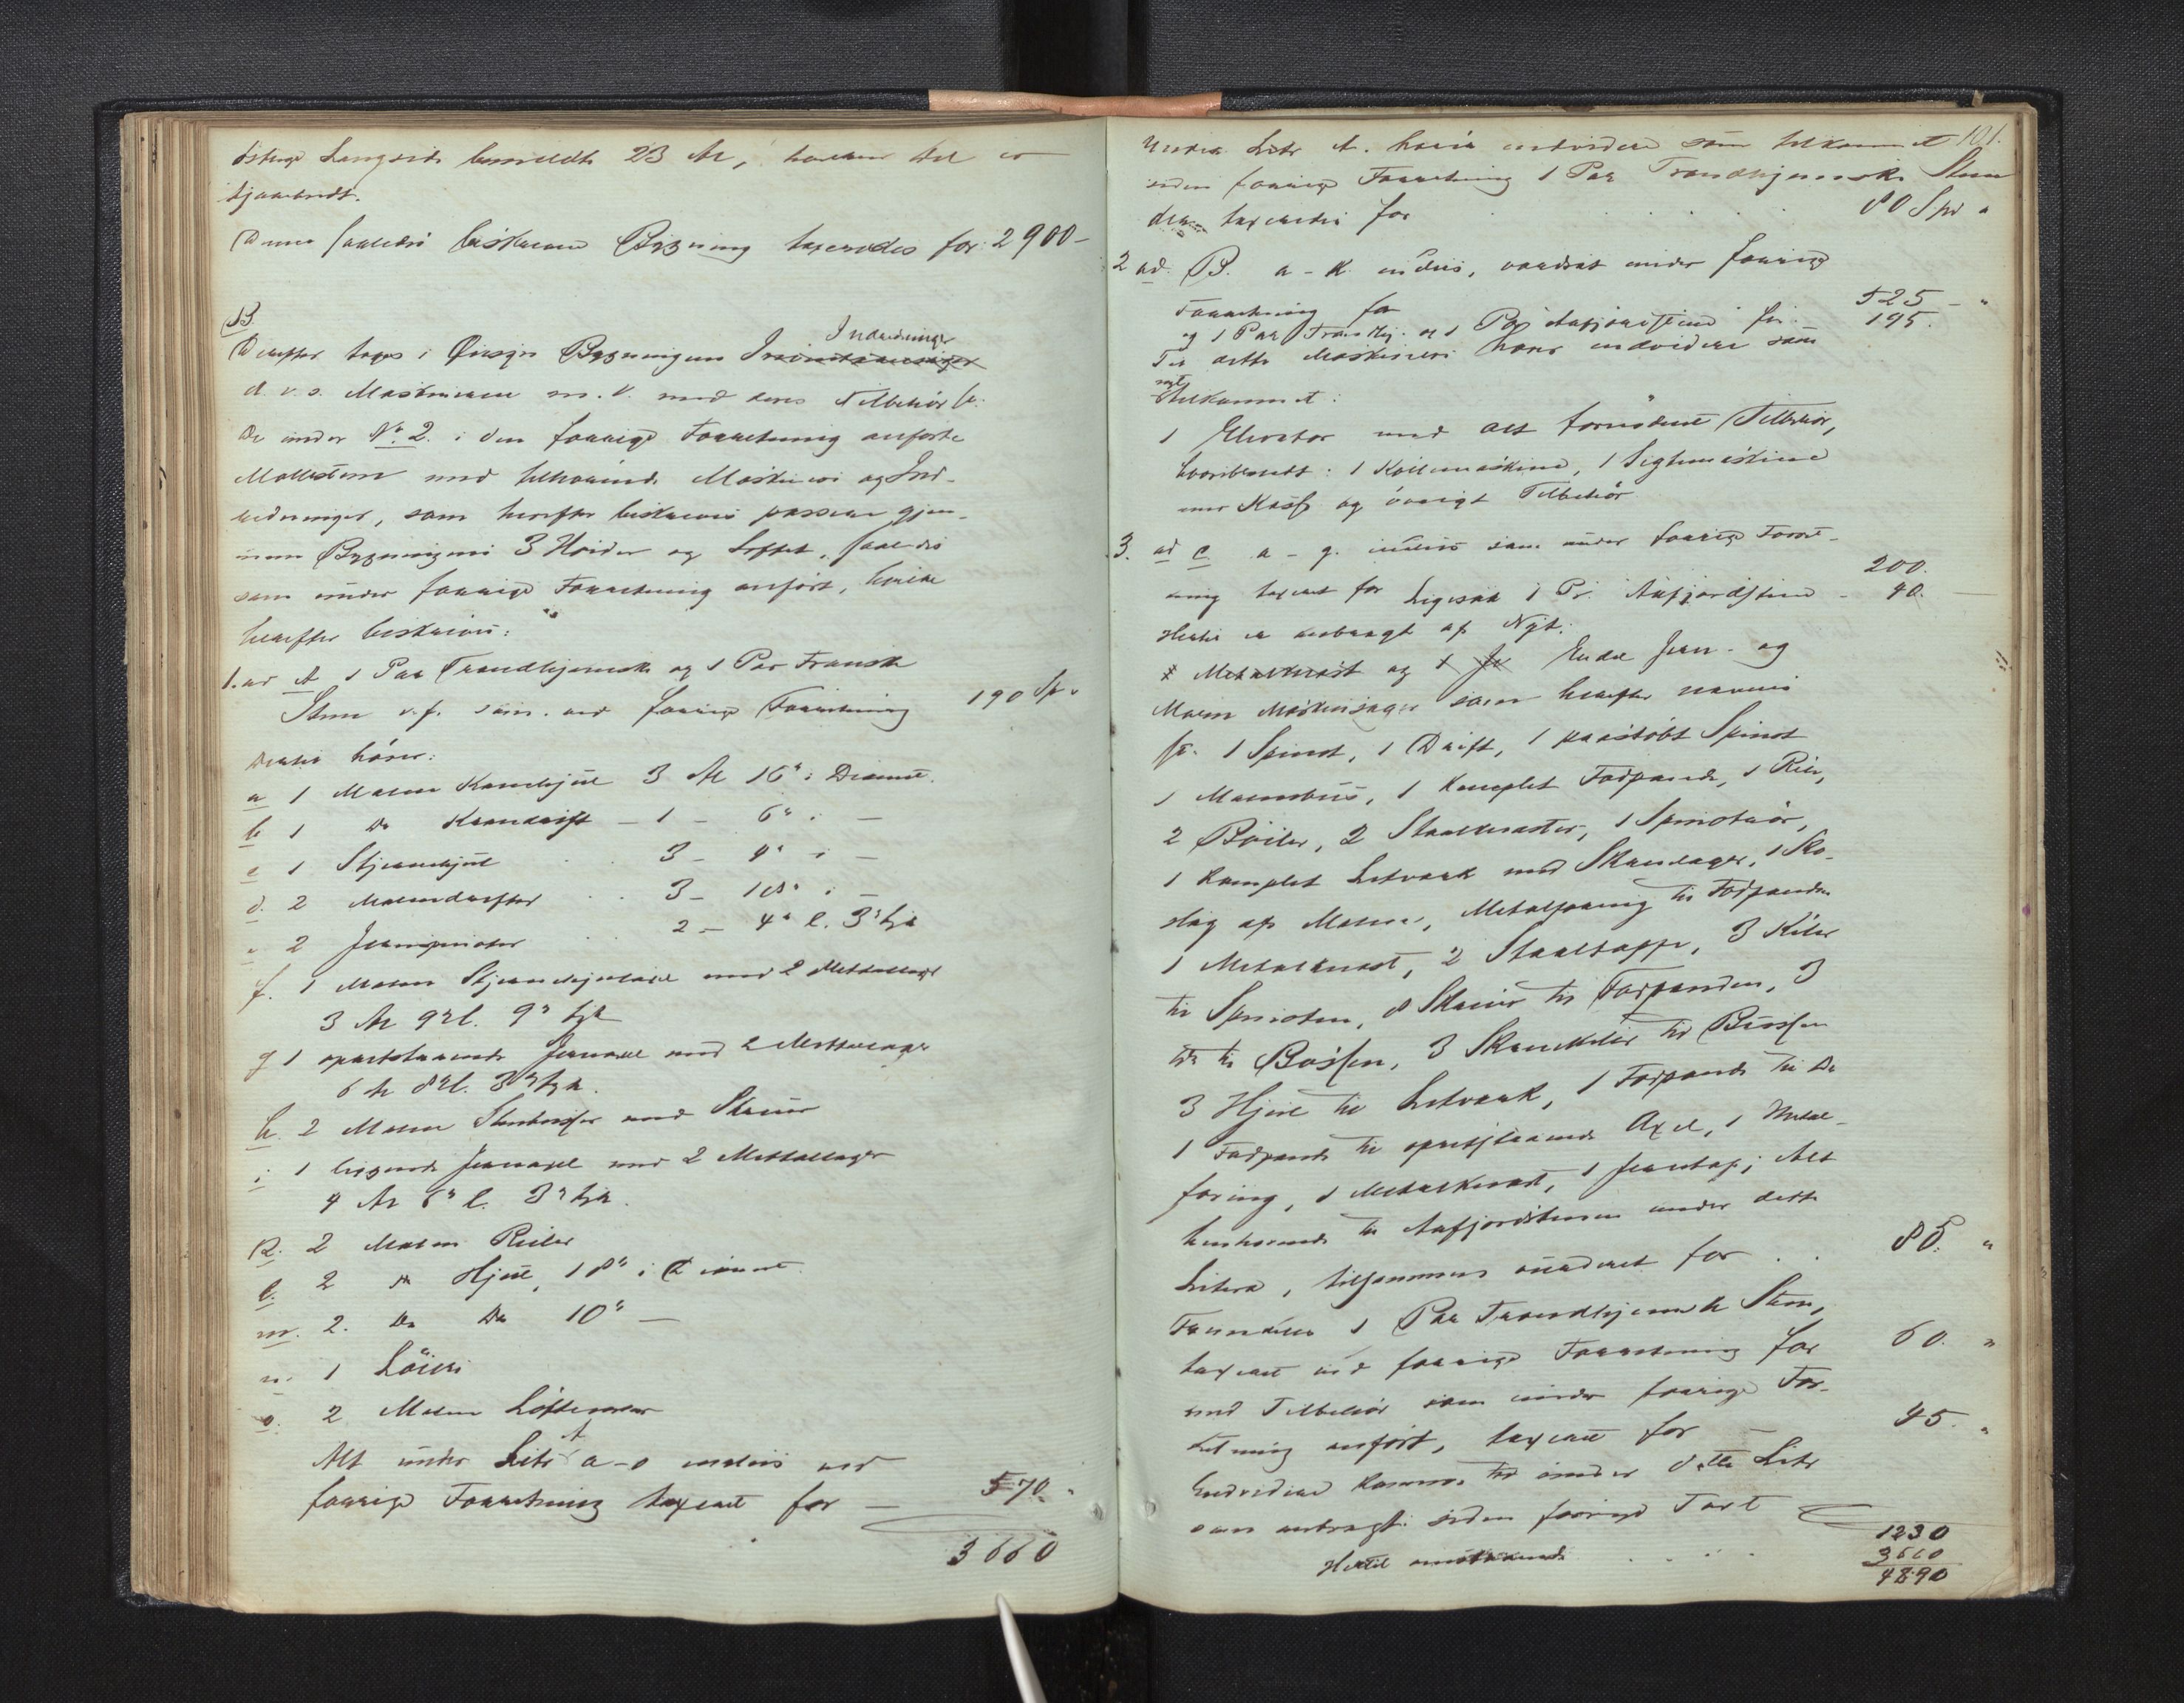 østlige Langside bemeldte 23 Al, hvoraf Del er
tjærebredt.
Denne saaledes beskrevne Bygning taxeredes for: 2900 —
B.
Indredninger
Derefter toges i Øiesyn Bygningens
d. v. s. Maskineriet m. V. med deres Tilbehør
De under No. 2. i den forrige Forretning anførte
Møllestene med tilhørende Maskineri og Ind-
redninger, som herefter beskrives passerer gjen-
nem Bygningens 3 Høider og Loftet, saaledes
som under forrige Forretning anført, hvilke
herefter beskrives:
1. ad A 1 Par Trondhjemske og 1 Par Franske
Stene v. f. som ved forrige Forretning 190 Sp "
Dertil hører:
a 1 Malm Kamhjul 3 Al 16" i Diamet.
b 1 Do Kamdrift — 1 — 6" i —
c 1 Stjernehjul 3 — 4" i —
d. 2 Malmdrifter 3 — 10" i —
e 2 Jernspinoler 2 — 4" l. 3" tyk
f. 1 Malm Stjernehjulaxel med 2 Metallager
3 Al 9" l. 9" tyk
g 1 opretstaaende Jernaxel med 2 Metallager
6 Al 8" l. 3" tyk.
h. 2 Malm Stenbøsser med Skruer
i 1 liggende Jernaxel med 2 Metallager
4 Al 6" l. 3" tyk.
k. 2 Malm Reiler
l. 2 Do Hjul, 18" i Diamet.
m. 2. Do Do 10" —
n. 1 Løier
o. 2 Malm
Alt under Litr A a–o inclus ved
forrige Forretning taxeret for — 570. "
3660
101.
Under Litr A. hører endvidere som tilkommet
siden forrige Forretning 1 Par Trondhjemske Stene
der taxeredes for 80 Spd "
2 ad. B. a – k inclus, vurderet under forrige
Forretning for 525 — "
og 1 Par Trondhj. og 1 Par Aafjordstene for 195.
Til dette Maskineri hører endvidere som
nyt
tilkommet:
1 Elevator med Alt fornødent Tilbehør,
hvoriblandt: 1 Kollemaskine, 1 Sigtemaskine
med Kasse og øvrigt Tilbehør
3. ad C a – g. inclus som under forrige Forret-
ning taxeret for 200.
Ligesaa 1 Pr. Aafjordstene — 40. —
Hertil er anbragt af Nyt:
Metalkrast og Endel Jern- og
Malm Maskinsager som herefter nævnes
1 Spinol, 1 Drift, 1 paastøbt Spinol
1 Malmbøs, 1 komplet Fodpande, 1 Reile,
2 Bøiler, 2 Staalkraster, 1 Spinolrør,
1 komplet Letværk med Skruelager, 1 Sko-
slag af Malm, Metalforing til Fodpanden
1 Metalkrast, 2 Staaltappe, 3 Kiler
til Spinolen, 8 Skruer til Fodpanden, 3
Do til Bøssen, 3 Skruekiler til Bøssen
3 Hjul til Letværk, 1 Fodpande til Do
1 Fodpande til opretstaaende Axel, 1 Metal-
foring, 1 Metalkrast, 1 Jerntap; Alt
henhørende til Aafjordstenene under dette
Litera, tilsammen vurderet for . . 85. "
Fremdeles 1 Par Trondhjemske Stene,
taxeret ved forrige Forretning for 60. "
med Tilbehør som under forrige For-
retning anført, taxeret for — 45. "
Endvidere kommer til under dette Litr
som anbragt siden forrige Taxt
1230
Hertil omstaaende . . . . 3660
4890